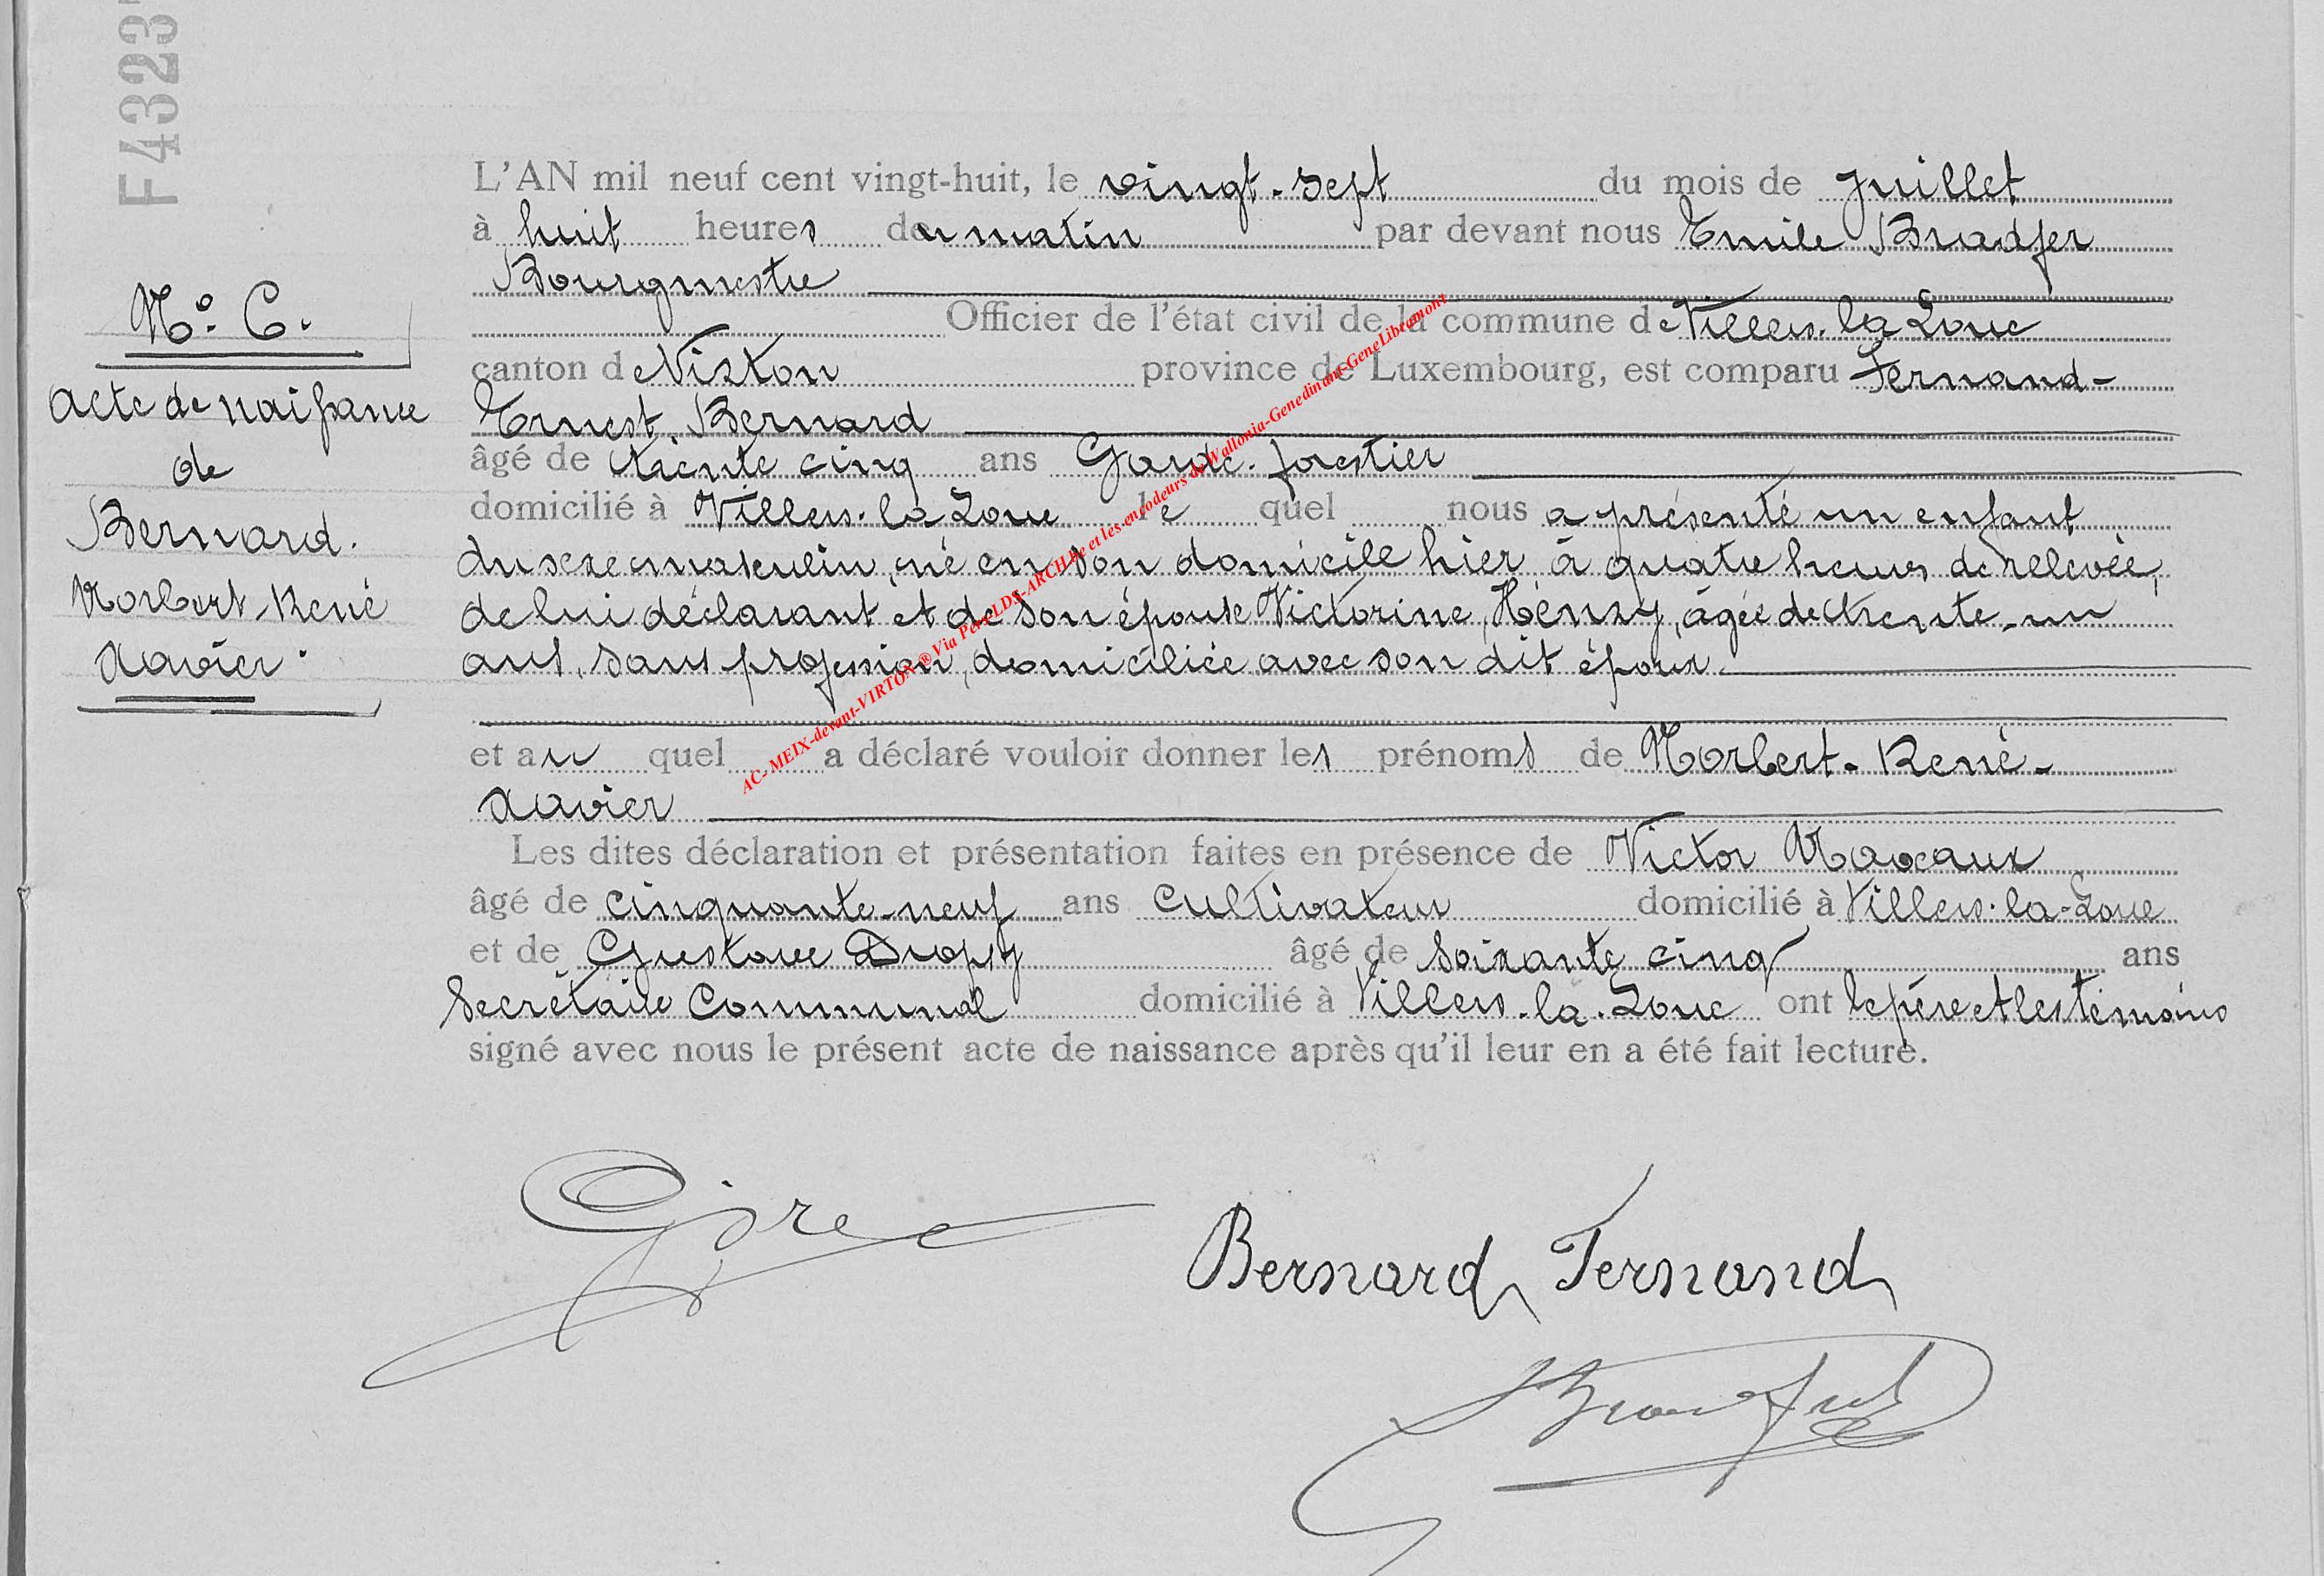 F 4323
L'AN mil neuf cent vingt-huit, le vingt-sept du mois de Juillet
à huit heures du matin par devant nous Emile Bradfer
Bourgmestre
Officier de l'état civil de la commune de Villers-la-Loue
canton de Virton province de Luxembourg, est comparu Fernand-
Ernest Bernard
âgé de trente cinq ans Garde-forestier
domicilié à Villers-la-Loue lequel nous a présenté un enfant
du sexe masculin, né en son domicile hier, à quatre heures de relevée,
de lui déclarant et de son épouse Victorine, Hénry, âgée de trente-un
ans, sans profession, domiciliée avec son dit époux.
et au quel a déclaré vouloir donner les prénoms de Norbert-René-
Xavier
Les dites déclaration et présentation faites en présence de Victor
âgé de cinquante-neuf ans Cultivateur domicilié à Villers-la-Loue
et de Gustave âgé de soixante cinq ans
Secrétaire Communal domicilié à Villers-la-Loue ont le père et les témoins
signé avec nous le présent acte de naissance après qu'il leur en a été fait lecture.
N° 6.
Acte de naissance
de
Bernard.
Norbert-René
Xavier.
AC-MEIX-devant-VIRTON ® Via Pere LDS-ARCH.be et les encodeurs de Wallonia-Genedinant-GeneLibramont
Bernard Fernand